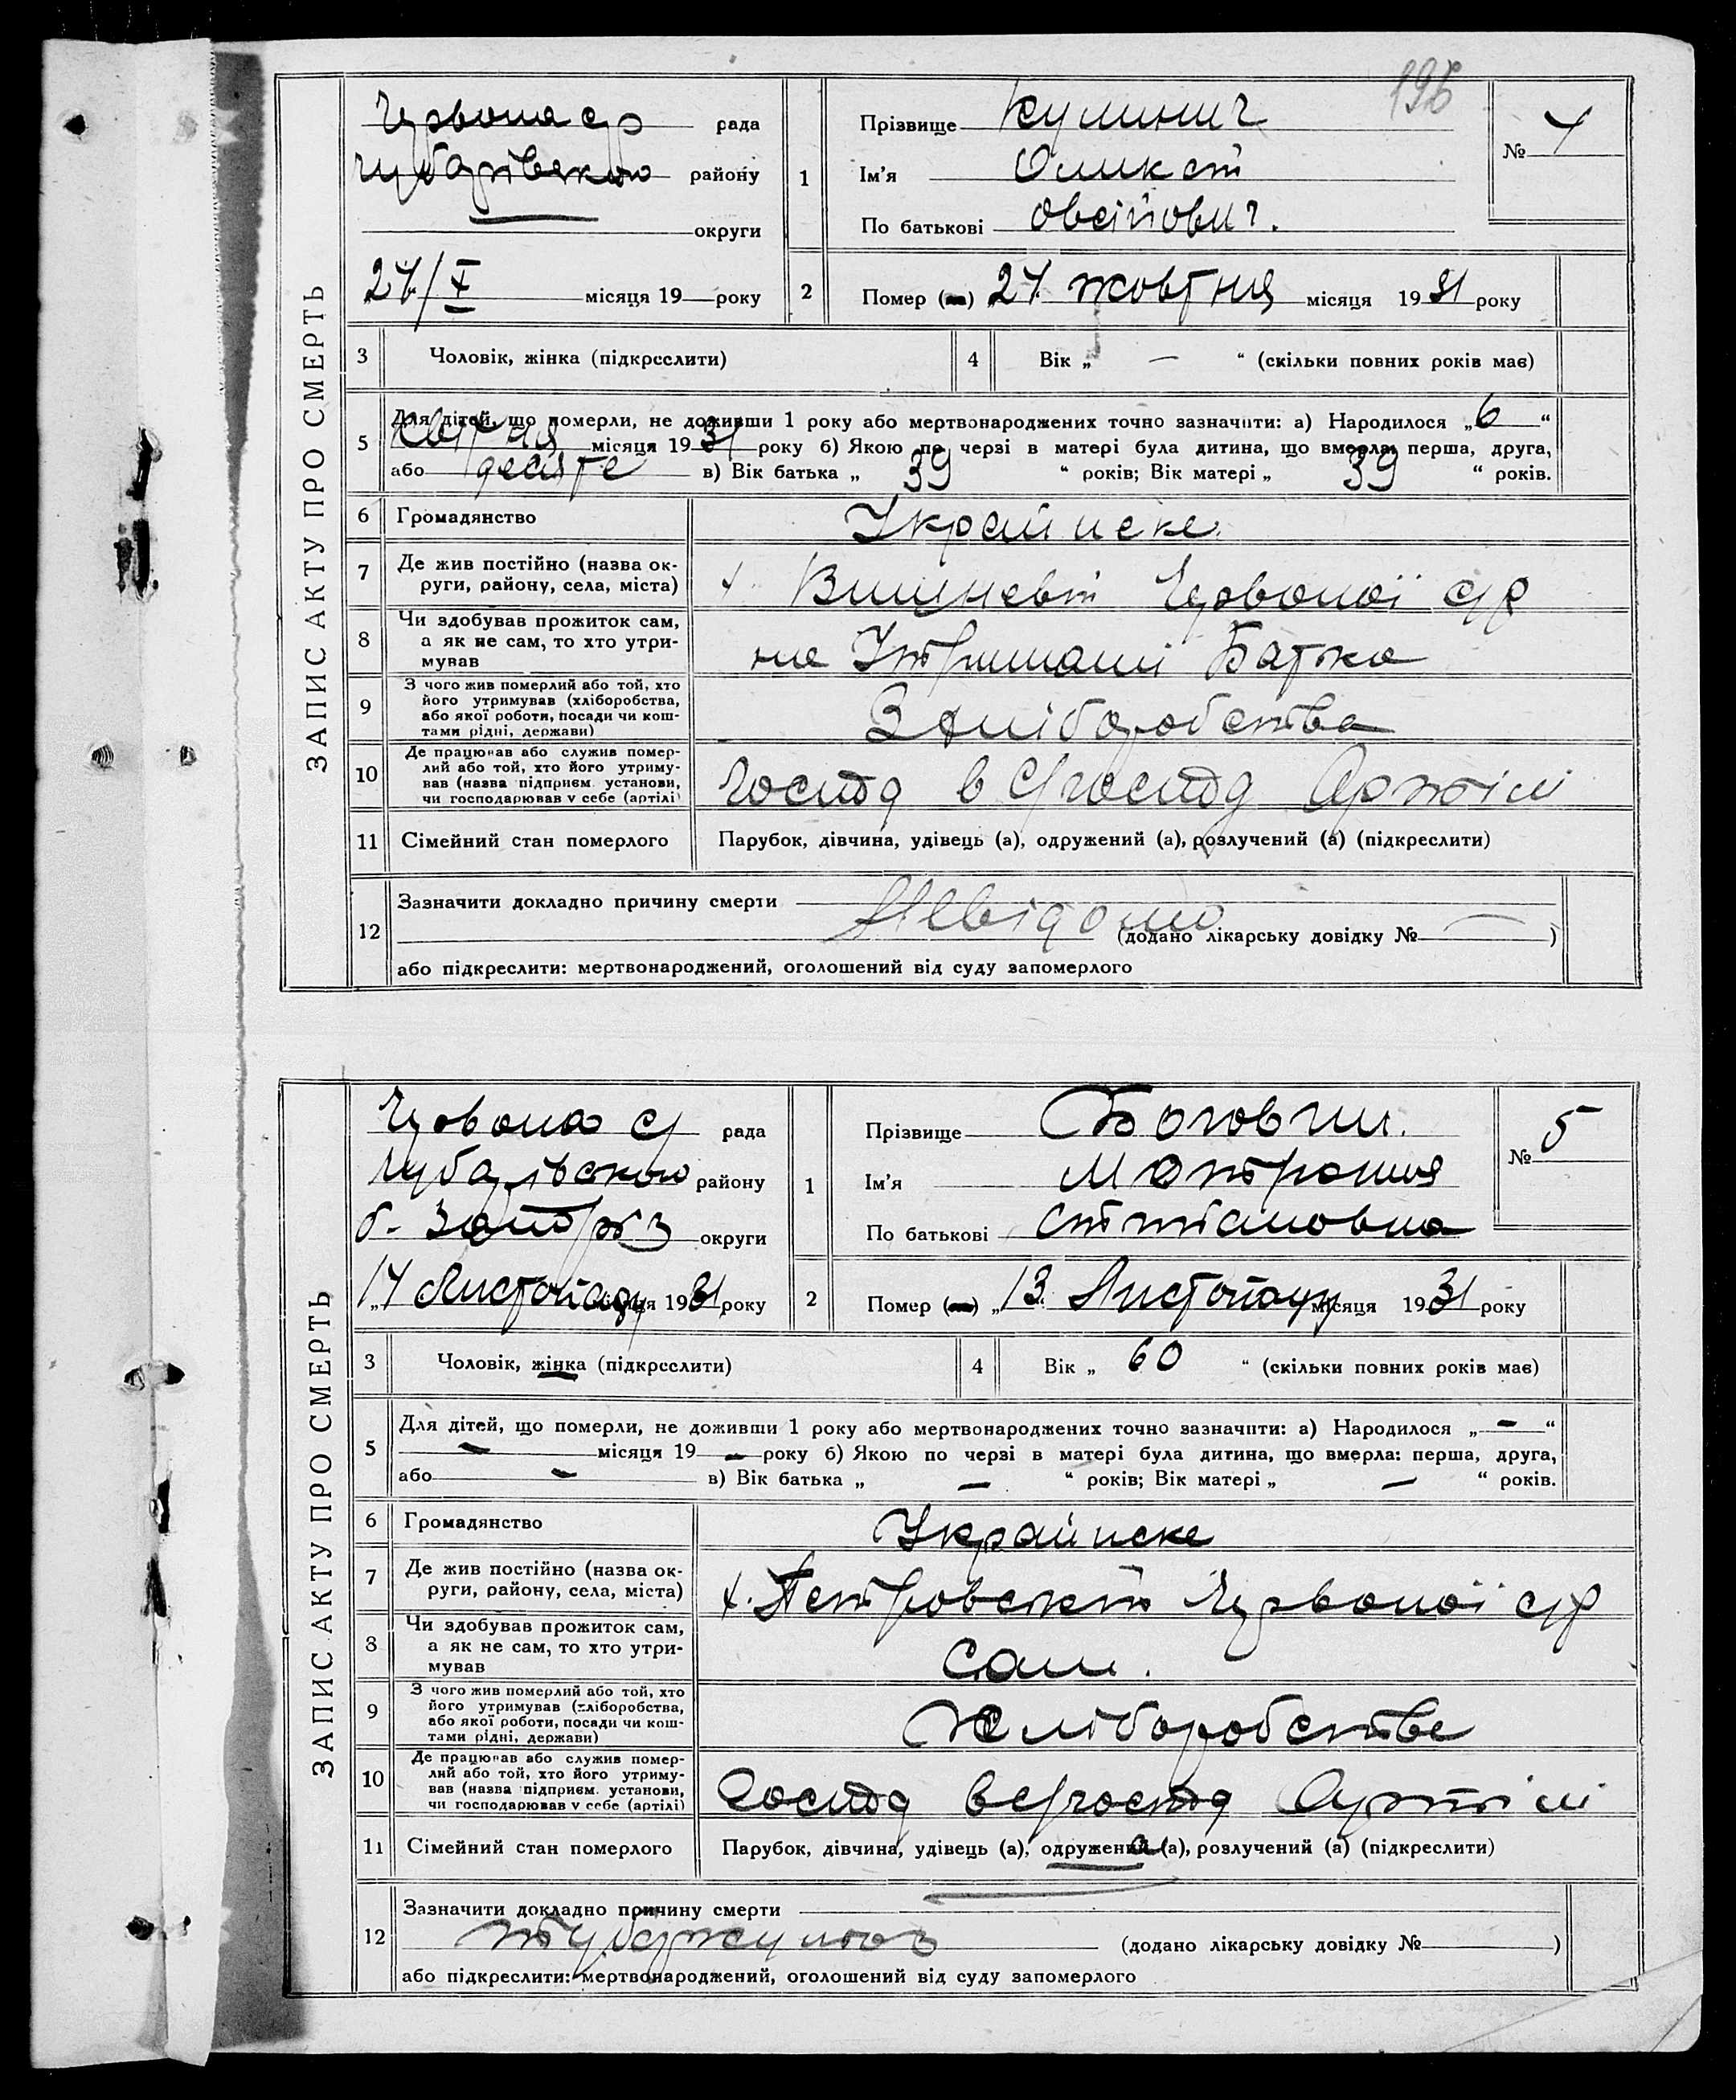 196
ЗАПИС АКТУ ПРО СМЕРТЬ
Червона с/р рада
Чубарівського району
округи
27/X місяця 19 року
1
Прізвище Кулинич
Ім'я
По батькові Овсійович.
№ 4
2
Помер (ла) 27 жовтня місяця 1931 року
3 Чоловік, жінка (підкреслити)
4 Вік „ — “ (скільки повних років має)
5 Для дітей, що померли, не доживши 1 року або мертвонароджених точно зазначити: а) Народилося „6“
Квітня місяця 1931 року б) Якою по черзі в матері була дитина, що вмерла: перша, друга,
або десяте в) Вік батька „ 39 “ років; Вік матері „ 39 “ років.
6 Громадянство Українске
7 Де жив постійно (назва округи, району, села, міста)
х. Вишневт Червоної с/р
8 Чи здобував прожиток сам,
а як не сам, то хто утри-
мував
на Утриманні Батька
9 З чого жив померлий або той, хто
його утримував (хліборобства,
або якої роботи, посади чи кош-
тами рідні, держави)
З хліборобства
10 Де працював або служив помер-
лий або той, хто його утриму-
вав (назва підприєм. установи,
чи господарював у себе (артілі)
Господ в С/господ Артілі
11 Сімейний стан померлого Парубок, дівчина, удівець (а), одружений (а), розлучений (а) (підкреслити)
12 Зазначити докладно причину смерти
Невідомо (додано лікарську довідку № — )
або підкреслити: мертвонароджений, оголошений від суду запомерлого
ЗАПИС АКТУ ПРО СМЕРТЬ
Червона с/ рада
Чубарівського району
б. Запоріз округи
„14 Листопаду місяця 1931 року
1
Прізвище
Ім'я Мотрона
По батькові Степановна
№ 5
2
Помер (ла) „13. Листопаду місяця 1931 року
3 Чоловік, жінка (підкреслити)
4 Вік „ 60 “ (скільки повних років має)
5 Для дітей, що померли, не доживши 1 року або мертвонароджених точно зазначити: а) Народилося „ — “
— місяця 19 — року б) Якою по черзі в матері була дитина, що вмерла: перша, друга,
або — в) Вік батька „ — “ років; Вік матері „ — “ років.
6 Громадянство Українске
7 Де жив постійно (назва ок-
руги, району, села, міста)
х. Петровскт Червоної с/р
8 Чи здобував прожиток сам,
а як не сам, то хто утри-
мував
Сам.
9 З чого жив померлий або той, хто
його утримував (хліборобства,
або якої роботи, посади чи кош-
тами рідні, держави)
Хліборобстве
10 Де працював або служив помер-
лий або той, хто його утриму-
вав (назва підприєм. установи,
чи господарював у себе (артілі)
Господ в С/господ Артілі
11 Сімейний стан померлого Парубок, дівчина, удівець (а), одружений (а), розлучений (а) (підкреслити)
12 Зазначити докладно причину смерти
туберкульоз (додано лікарську довідку № )
або підкреслити: мертвонароджений, оголошений від суду запомерлого